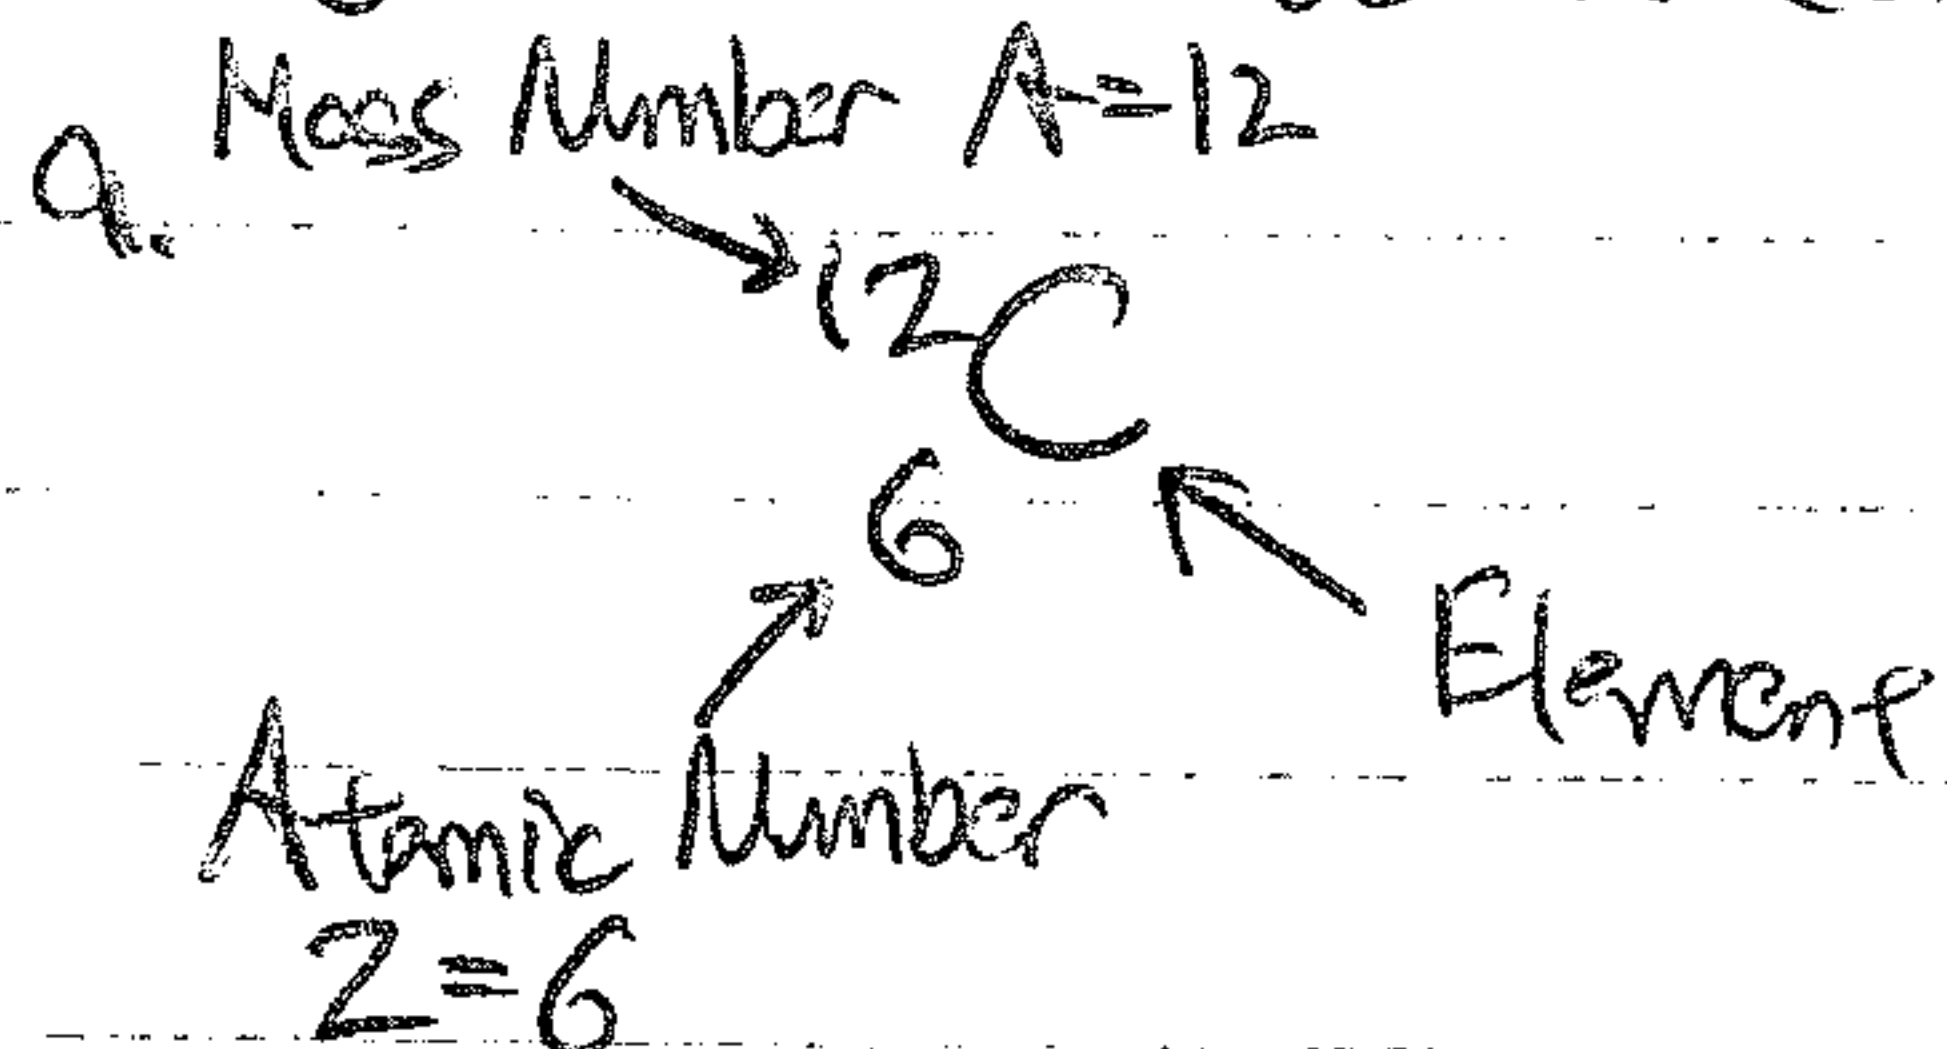 Mass Number A=12
a.
12C
6
Element
Atomic Number
Z=6